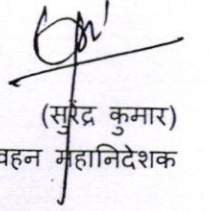 (सुरेंद्र कुमार)
वहन महानिदेशक